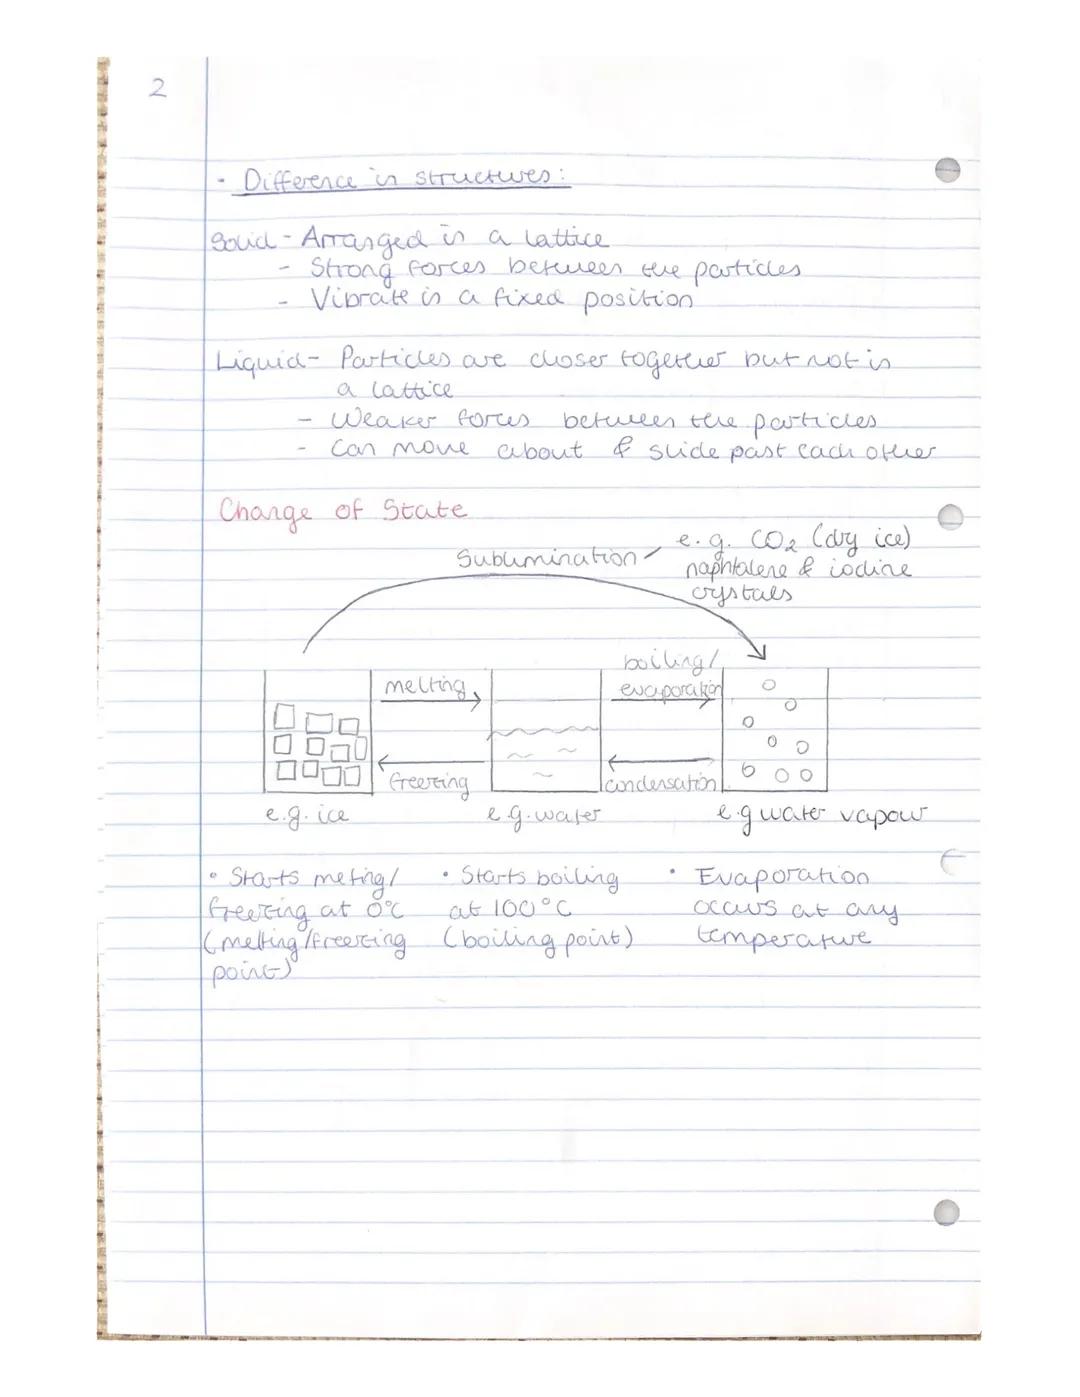 2
- Difference in structures:
Solid - Arranged in a lattice
- Strong forces between the particles
- Vibrate in a fixed position
Liquid - Particles are closer together but not in
a lattice
- Weaker forces between the particles
- Can move about & slide past each other
Change of State
Sublimination - e.g. CO₂ (dry ice)
naphtalene & iodine
crystals
boiling/
melting evaporation
freezing condensation
e.g. ice e.g. water e.g water vapour
• Starts meting/ • Starts boiling • Evaporation
freezing at 0°C at 100°C occurs at any
(melting/freezing (boiling point) temperature
point)